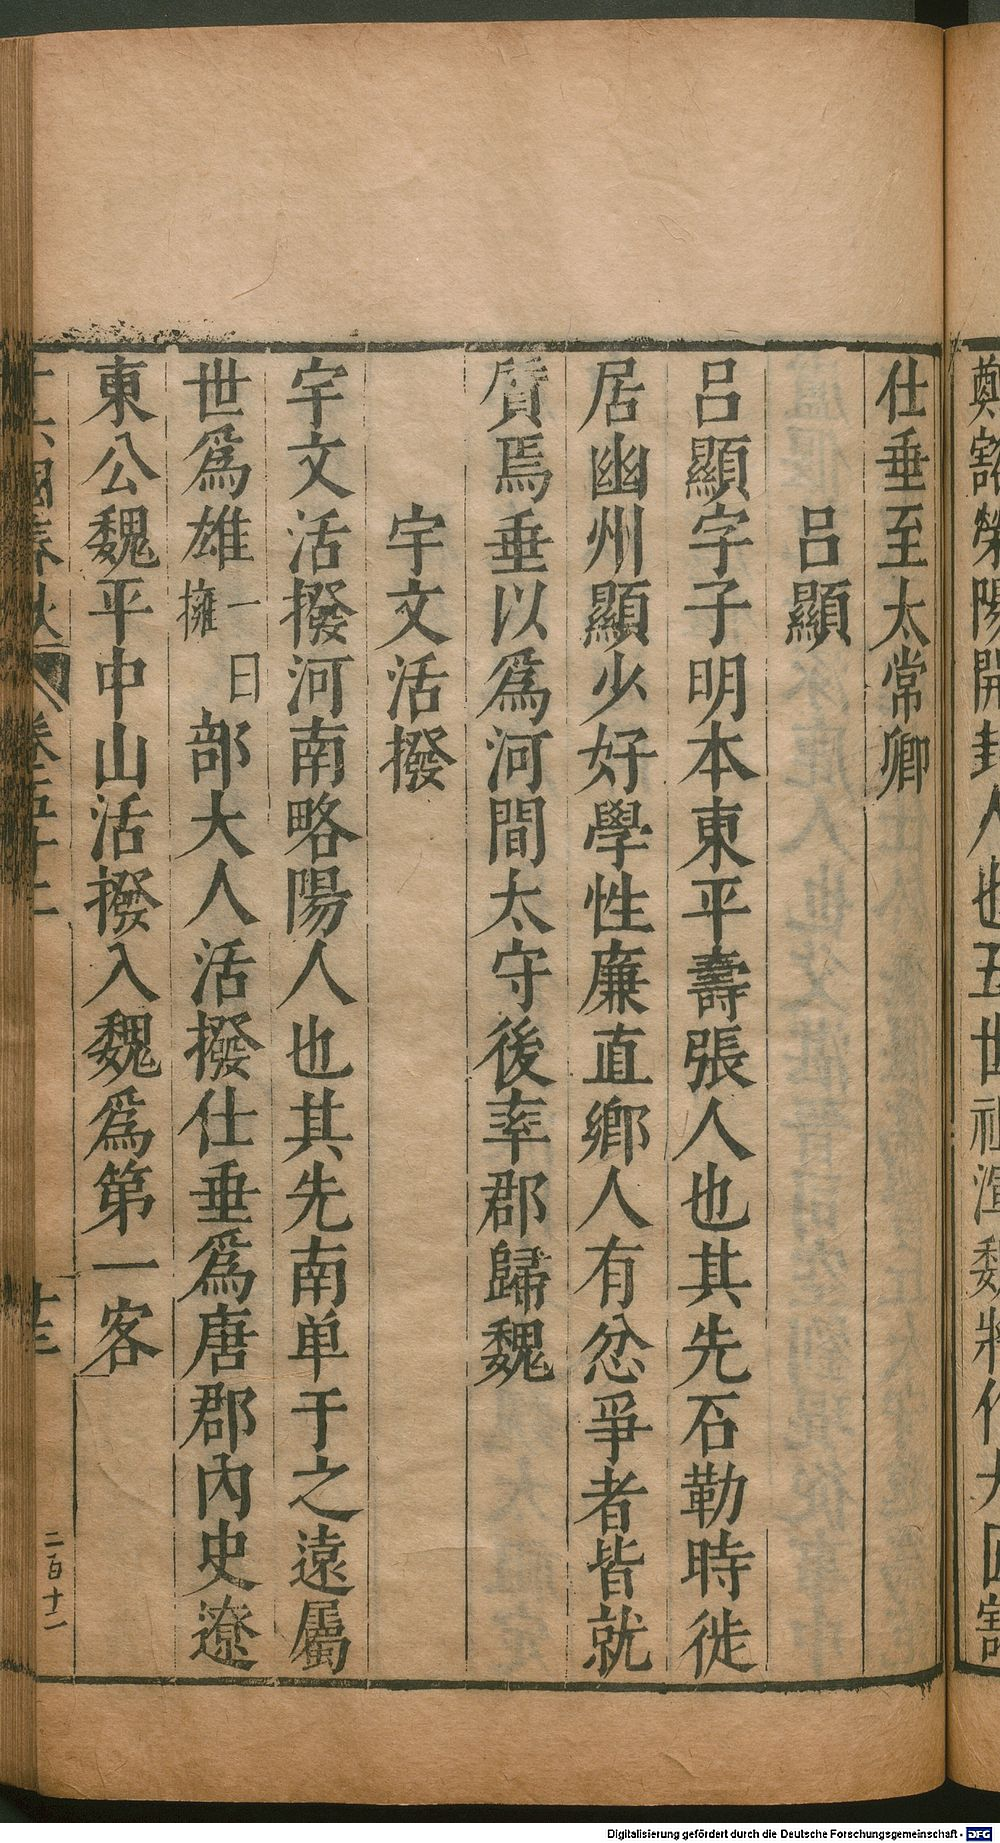 鄭豁滎陽開封人也五世祖渾魏將作大匠豁
仕垂至太常卿
呂顯
呂顯字子明本東平壽張人也其先石勒時徙
居幽州顯少好學性廉直鄉人有忿爭者皆就
質焉垂以爲河間太守後率郡歸魏
宇文活撥
宇文活撥河南略陽人也其先南单于之遠屬
世爲雄一曰擁部大人活撥仕垂爲唐郡內史遼
東公魏平中山活撥入魏爲第一客
十六國春秋
卷五十二
十三
二百十二
Digitalisierung gefördert durch die Deutsche Forschungsgemeinschaft - DFG